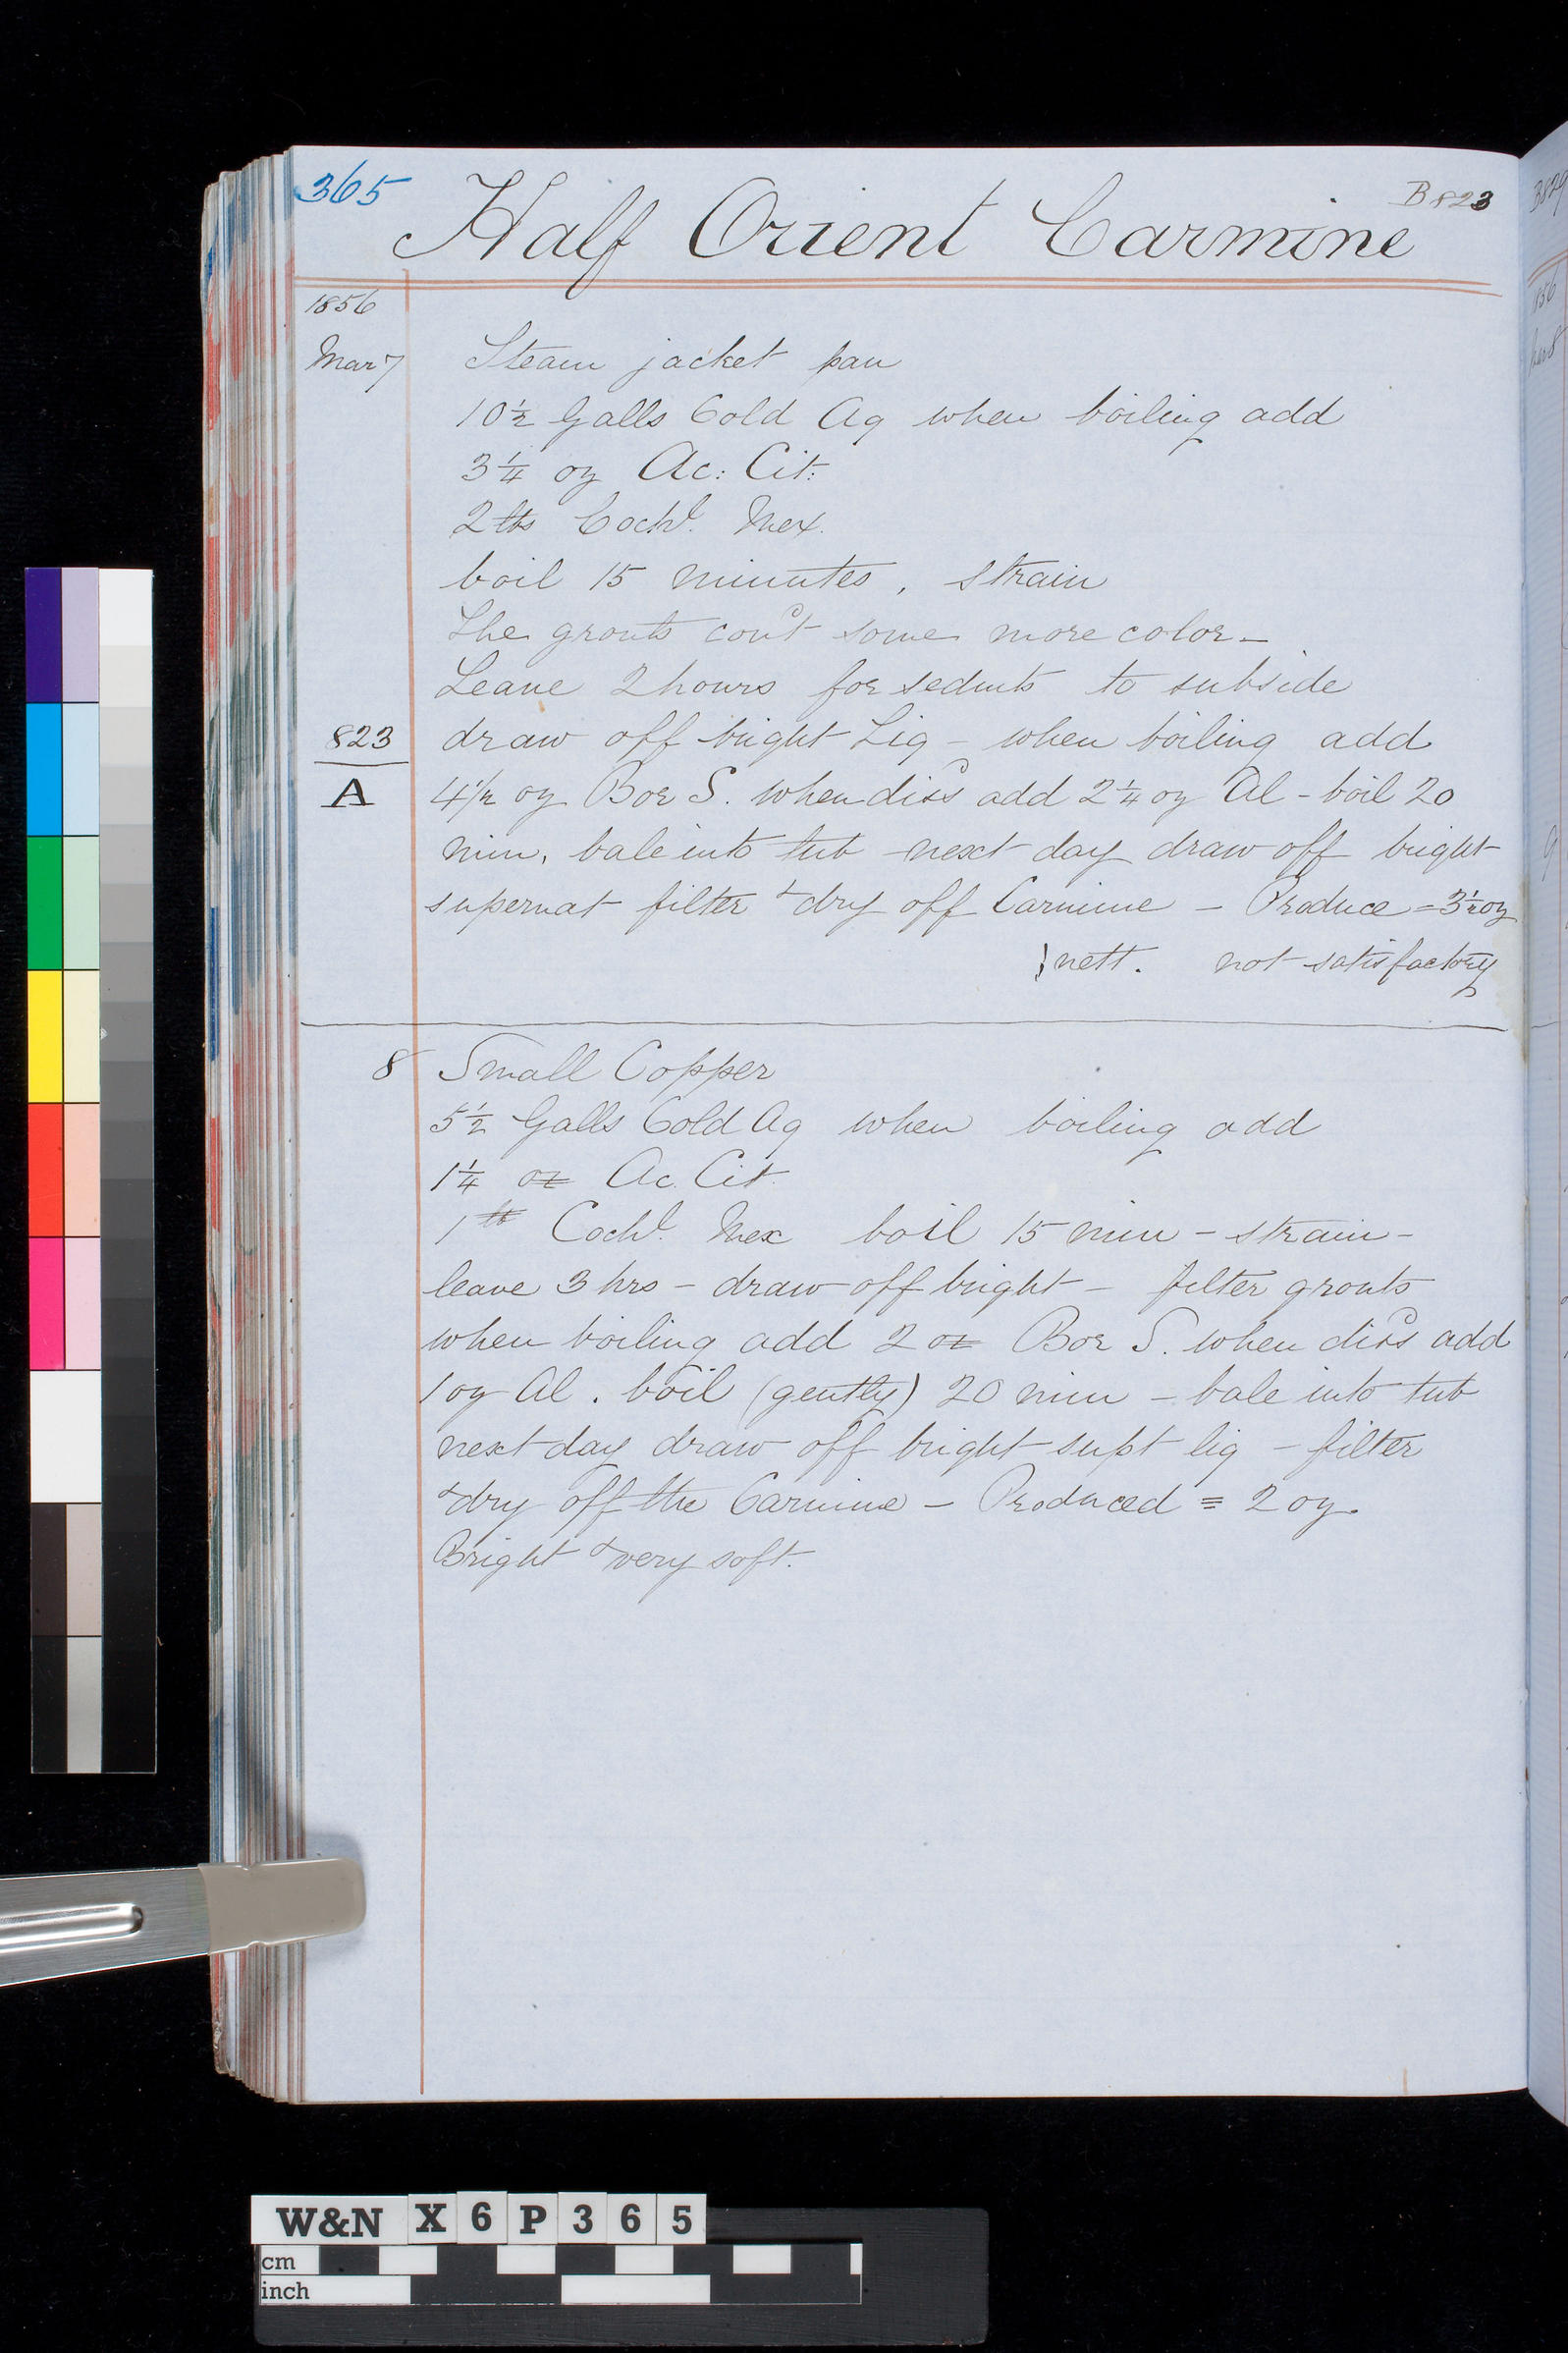 365
B 823
Half Orient Carmine
1856
Mar 7
Steam jacket pan
10½ Galls Cold Aq when boiling add
3¼ oz Ac: Cit:
2 lbs Cochl. Mex.
boil 15 minutes, strain
The grouts contd some more color –
Leave 2 hours for sedmts to subside
823
draw off bright Liq – when boiling add
A
4½ oz Bor S. when dissd add 2¼ oz Al – boil 20
min, bale into tub next day draw off bright
supernat filter & dry off Carmine – Produce = 3½ oz
nett. not satisfactory
8 Small Copper
5½ Galls Cold Aq when boiling add
1¼ oz Ac. Cit.
1 lb Cochl. Mex boil 15 min – strain –
leave 3 hrs – draw off bright – filter grouts
when boiling add 2 oz Bor S. when dissd add
1 oz Al. boil (gently) 20 min – bale into tub
next day draw off bright supt liq – filter
& dry off the Carmine – Produced = 2 oz.
Bright & very soft.
W&N X6P365
cm
inch